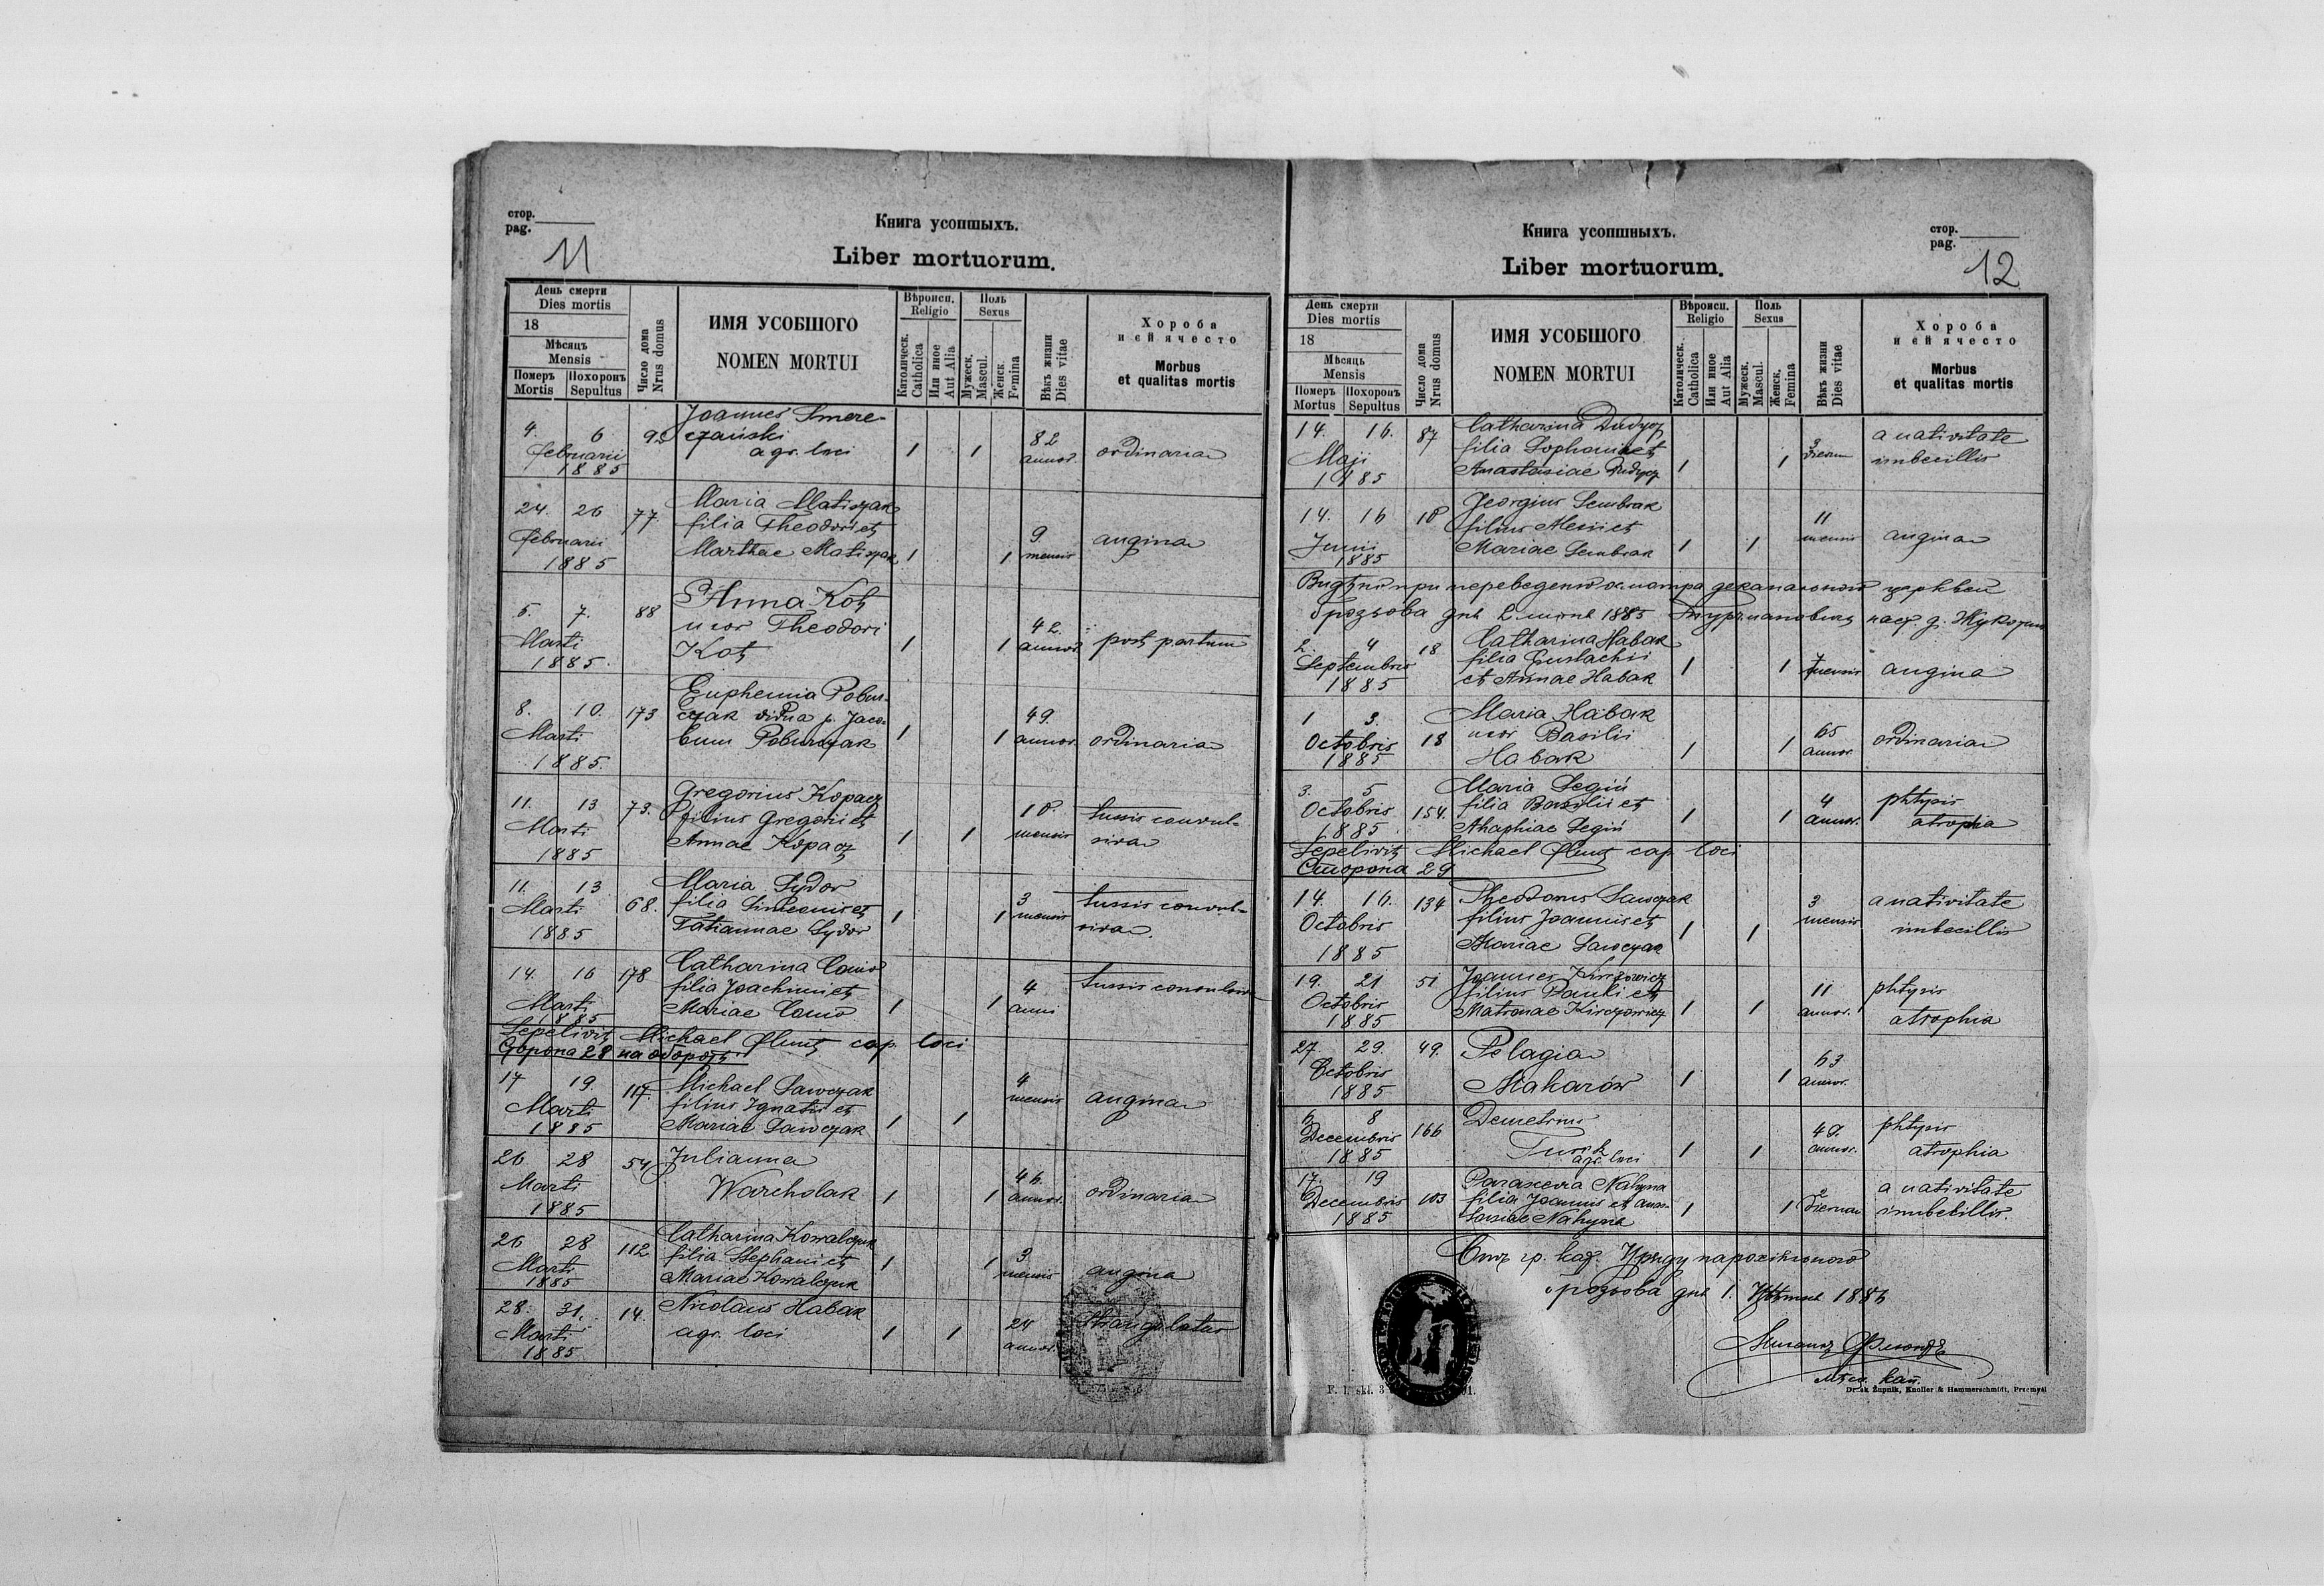 стор.
pag.
11
Книга усопшыхъ.
Liber mortuorum.
День смерти
Dies mortis
18
Мѣсяцъ
Mensis
Померъ
Mortis
Похоронъ
Sepultus
Число дома
Nrus domus
ИМЯ УСОБШОГО
NOMEN MORTUI
Вѣроисп.
Religio
Католическ.
Catholica
Или иное
Aut Alia
Поль
Sexus
Мужеск.
Mascul.
Женск.
Femina
Вѣкъ жизни
Dies vitae
Хороба
и ей ячесто
Morbus
et qualitas mortis
4. 6 92 Joannes Smere-
czański
Februarii agr. loci 1 1 82 annor. ordinaria
1885
24. 26 77. Maria Matiszak
filia Theodori et
Februarii Marthae Matiszak 1 1 9 mensis angina
1885
5. 7. 88 Anna Kot
uxor Theodori
Marti Kot 1 1 42. annor. post partum
1885.
8. 10. 173 Euphemia Pobur-
czak vidua p. Jaco-
Marti bum Poburczak 1 1 49. annor. ordinaria
1885.
11. 13 73. Gregorius Kopacz
filius Gregorii et
Marti Annae Kopacz 1 1 10. mensis tussis convul-
siva
1885
11. 13 68. Maria Sydor
filia Simeonis et
Marti Tatiannae Sydor 1 1 3 mensis tussis convul-
siva.
1885
14. 16 178 Catharina
filia Joachimi et
Marti Mariae 1 1 4 anni tussis convulsiva
1885
Sepelivit Michael cap. loci
Сторона 28 на оборотѣ
17 19. 117. Michael Sawczak
filius Ignatii et
Marti Mariae Sawczak 1 1 4 mensis angina
1885
26 28 54 Julianna
Marti Warcholak 1 1 46. annor. ordinaria
1885
26 28 112 Catharina Kowalczuk
filia Stephani et
Marti Mariae Kowalczuk 1 1 3 mensis angina
1885
28. 31. 14. Nicolaus Habak
Marti agr. loci 1 1 24 annor. Strangulatus
1885
Книга усопшныхъ.
Liber mortuorum.
стор.
pag.
12
День смерти
Dies mortis
18
Мѣсяць
Mensis
Померъ
Mortus
Похоронъ
Sepultus
Число дома
Nrus domus
ИМЯ УСОБШОГО
NOMEN MORTUI
Вѣроисп.
Religio
Католическ.
Catholica
Или иное
Aut Alia
Поль
Sexus
Мужеск.
Mascul.
Женск.
Femina
Вѣкъ жизни
Dies vitae
Хороба
и ей ячесто
Morbus
et qualitas mortis
14. 16. 87 Catharina Dudycz
filia et
Maji Anastasiae Dudycz 1 1 3 dierum a nativitate
imbecillis
1885
14. 16 18 Georgius Sembrak
filius Alexii et
Junii Mariae Sembrak 1 1 11 mensis angina
1885
Видѣно при переведеню осмотра деканальной церквей
Грозьова дня 2 1885
2. 4 18 Catharina Habak
filia Eustachii
Septembris et Annae Habak 1 1 7 mensis angina
1885
1 3. 18 Maria Habak
uxor Basilii
Octobris Habak 1 1 65 annor. ordinaria
1885
3. 5 154. Maria Segiń
filia Basilii et
Octobris Segiń 1 1 4 annor. phtysis
atrophia
1885.
Sepelivit Michael cap. loci
Сторона 29
14. 16. 134 Theodorus Sawczak
filius Joannis et
Octobris Mariae Sawczak 1 1 3 mensis a nativitate
imbecillis
1885
19. 21 51 Joannes
filius Pauli et
Octobris Matronae 1 1 11 annor. phtysis
atrophia
1885
27. 29. 49. Pelagia
Octobris Makarów 1 1 63 annor.
1885
6 8 166 Demetrius
Decembris Turek
agr. loci 1 1 annor. phtysis
atrophia
1885
17. 19 103 Parascevia
filia Joannis et Anas-
Decembris tasiae 1 1 dierum a nativitate
imbecillis.
1885
гр. каѳ. Уряду парохіяльного
Грозьова дня 1.
Михаилъ
F. l. skl. 3
Druk Żupnik, Knoller & Hammerschmidt, Przemyśl